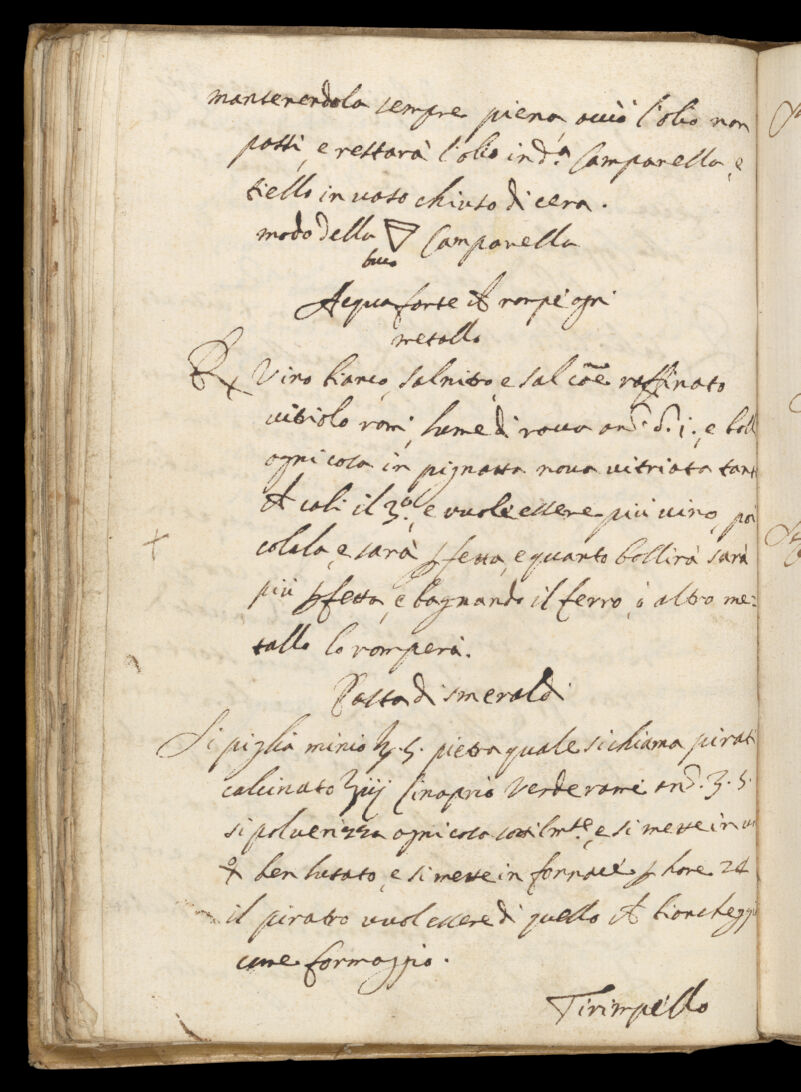 mantenendola sempre piena, acciò l'olio non
passi, e restarà l'olio in d.ª Campanella, e
tiello in vaso chiuso di cera.
modo della ▽ Campanella
buco
Acqua forte ch rompe ogni
metallo
Rx Vino bianco, salnitro, e sal coẽ raffinato
vitriolo romº, lume di rocca
ogni cosa in pignatta nova vitriata tant
ch cali il 3º, e vuole essere più vino, poi
colala, e sarà pfetta, e quanto bollirà sarà
più pfetta, e bagnando il ferro, ò altro me=
tallo lo romperà.
Pasta di smeraldi
Si piglia minio ℥. 5. pietra quale si chiama pirat
calcinato ℥iij Cinaprio Verderame
si polverizza ogni cosa sottilmte, e si mette in
ben lutato, e si mette in fornace p hore 24
il piratro vuol essere di quello ch biancheggi
come formaggio.
Tirimpello